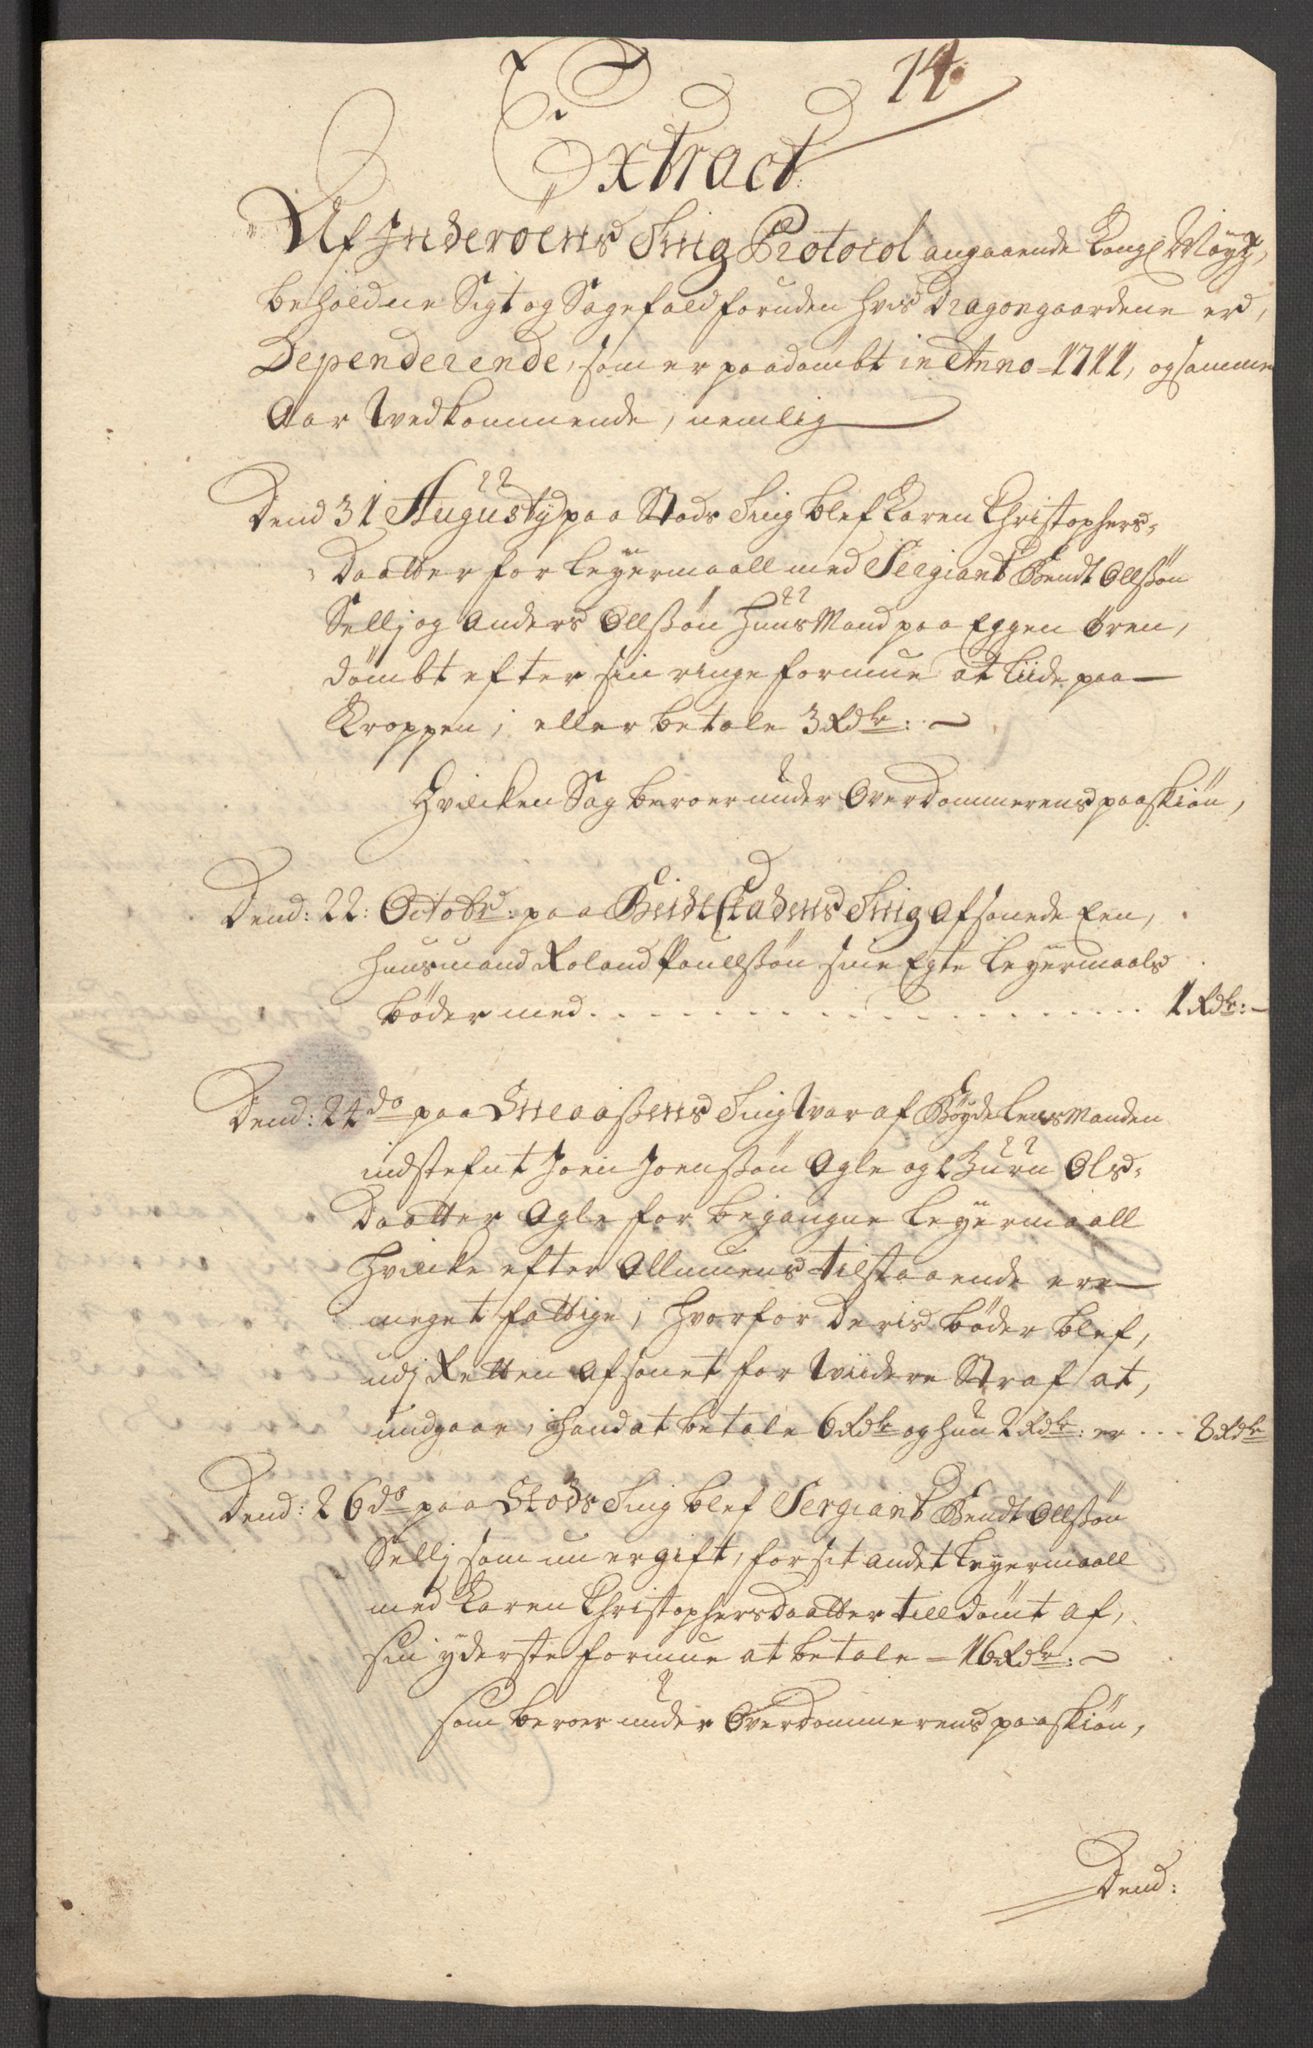 14.
Extract
Af Inderöens Ting Protocol angaaende Kongl Mayt,
beholdne Sigt og Sagefald foruden hvis Dragongaardene er,
Dependerende, som er paadømbt in Anno = 1711, og samme
Aar Wedkommende, nemlig
Dend 31 Augustij paa Stods Ting blef Karen Christophers-
Daatter for Leyermaall med Sergiant Bendt Ollßøn
Sellj og Anders Ollßøn Huus Mand paa Eggen Øren,
dømbt efter sin ringe formue at Liide paa
Kroppen, eller betale 3 Rdr: ~
Hvilcken Sag beroer under Overdommerens paaskiøn,
Dend: 22: Octobr: paa Beidestadens Ting afsonede Een,
huusmand Roland Poullßøn sine Egte Leyermaals
bøder med . . . . . 1 Rdr: ~
Dend: 24 do paa Sneaaßens Ting War af Bøyde Lens Manden
indstefnt Joen Joenßøn Agle og Guru Ols-
Daatter Agle for begangne Leyermaall
hvilcke efter Allmuens tilstaaende ere
meget fattige, hvorfor deris bøder blef,
udj Retten afsonet for Widere Straf at,
undgaae, hand at betale 6 Rdr og hun 2 Rdr: er . . . 8 Rdr
Dend: 26 do paa Stods Ting blef Sergiant Bendt Ollßøn
Sellj som nu er gift, for sit andet Leyermaall
med Karen Christophersdaatter tilldømt af,
sin yderste formue at betale = 16 Rdr: ~
som beroer under Overdommerens paaskiøn,
Dend: